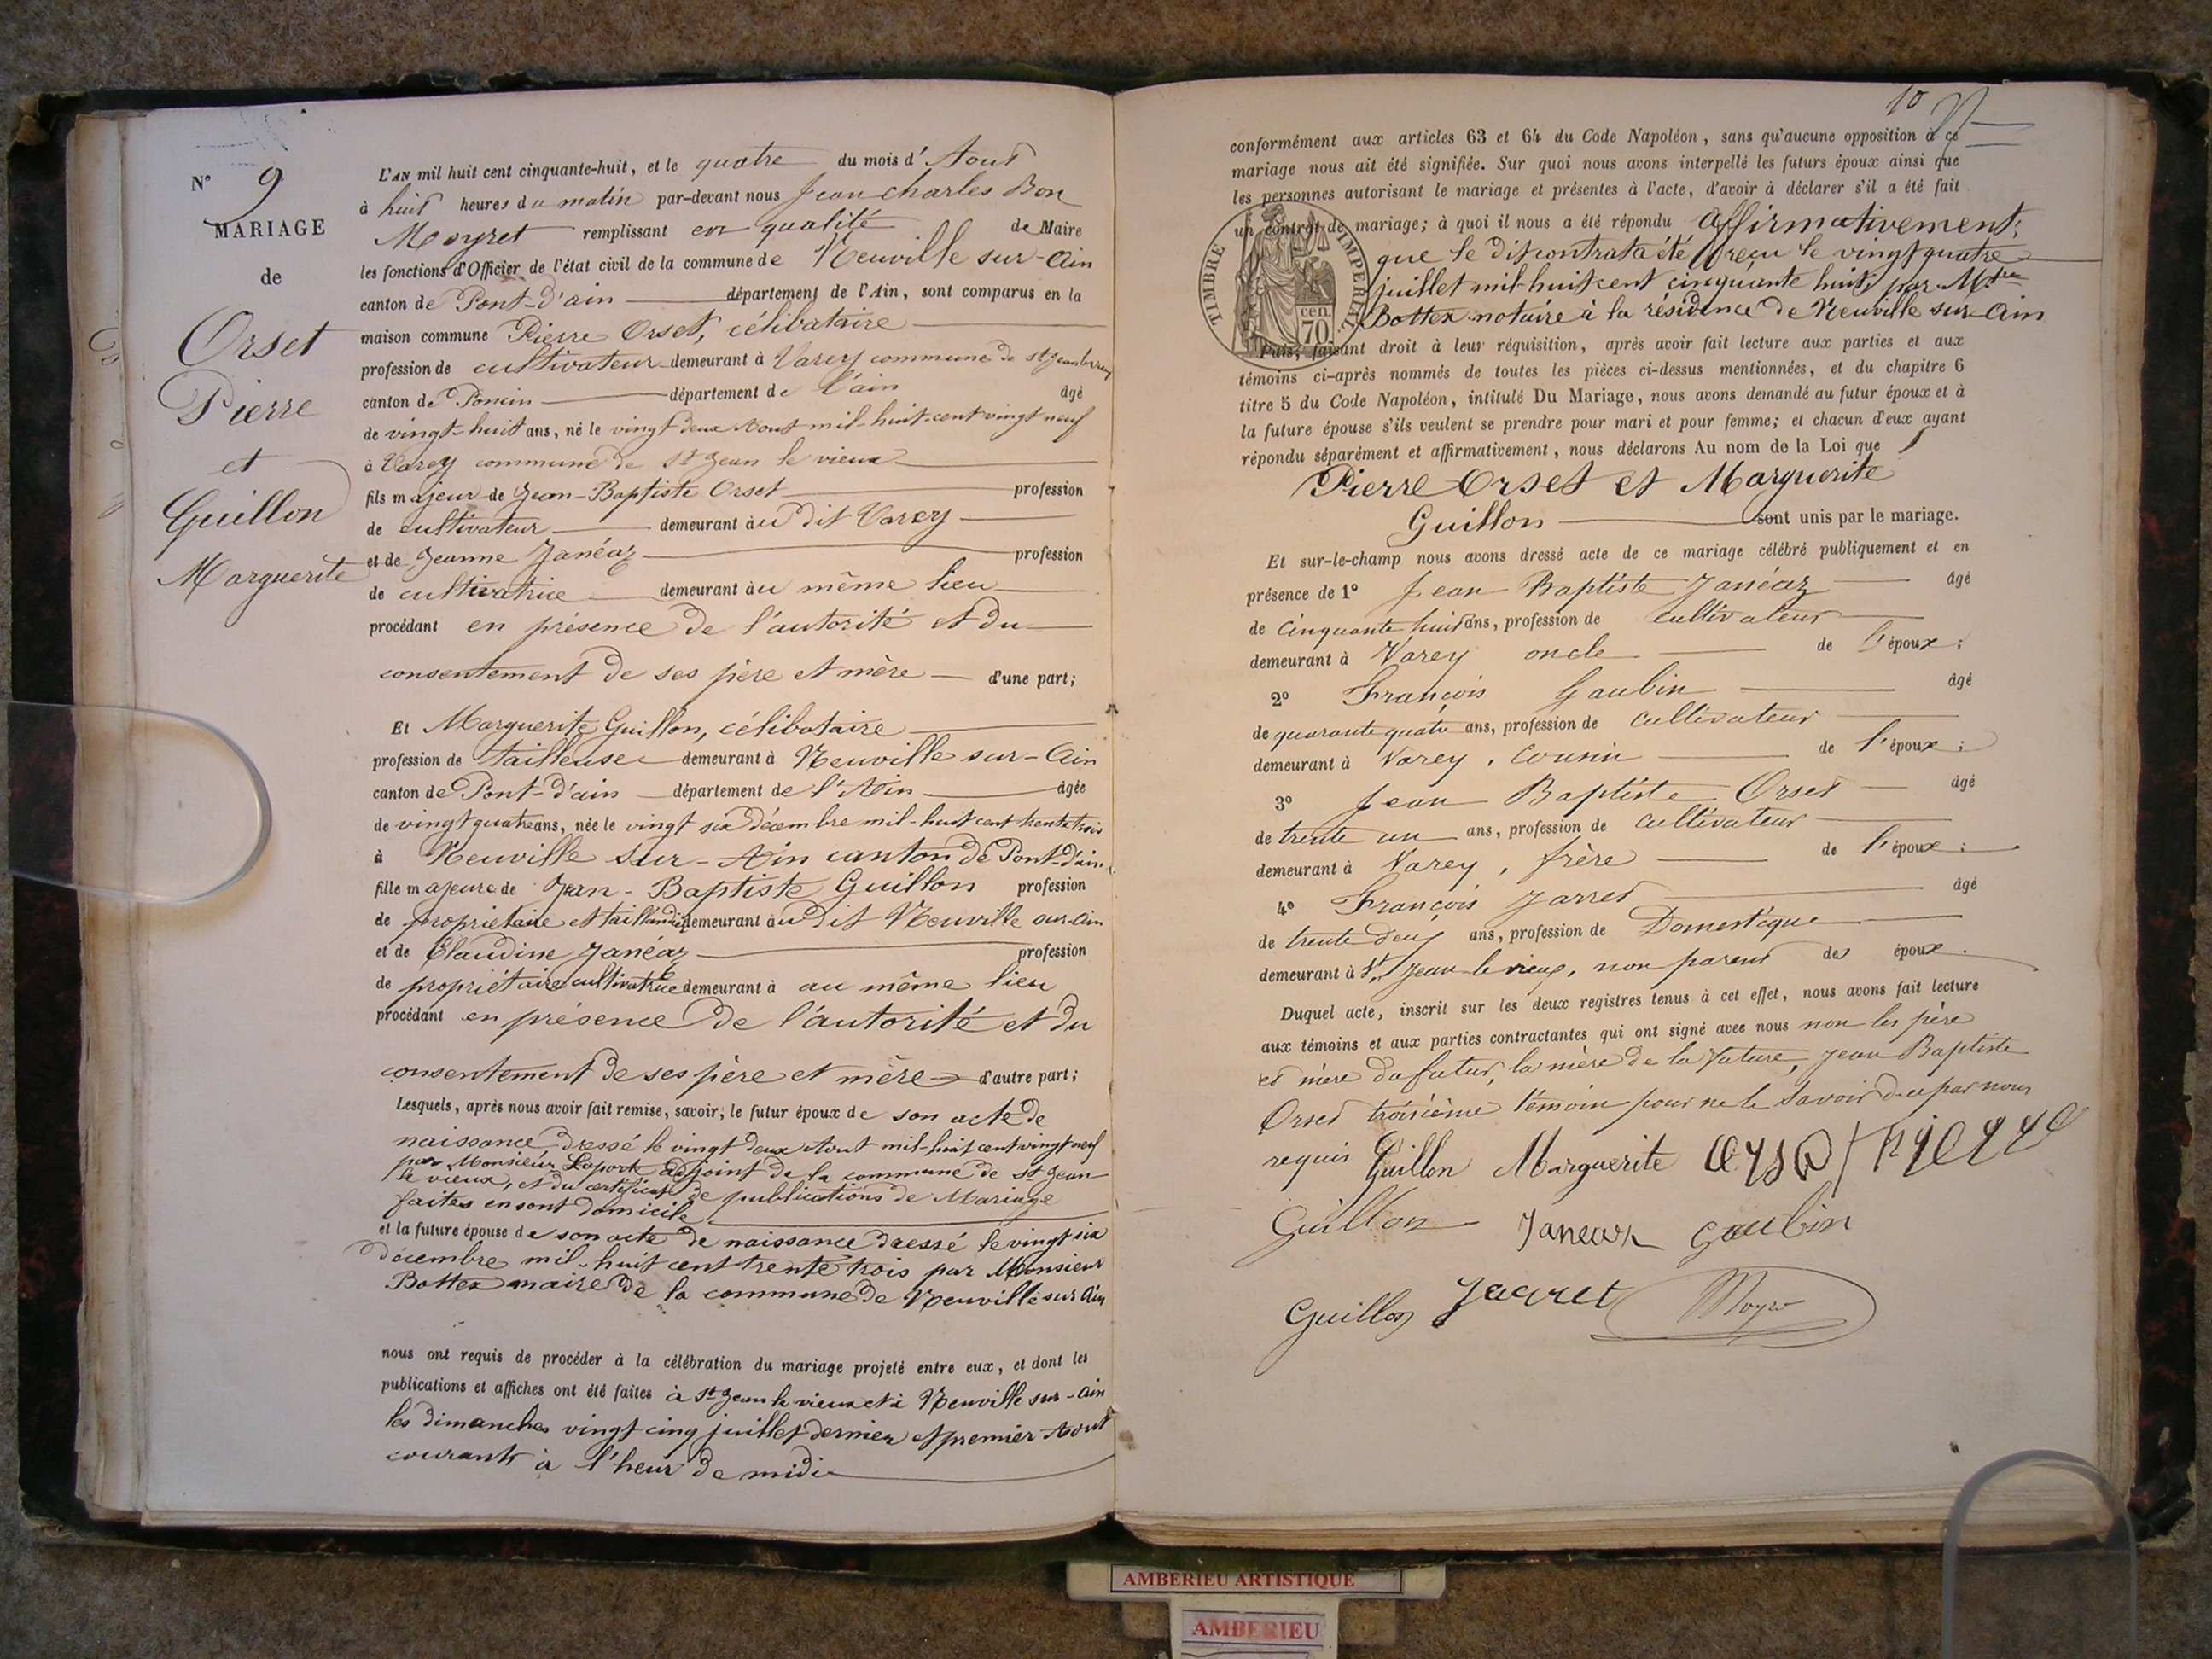 N° 9
MARIAGE
de
Orset
Pierre
et
Guillon
Marguerite
L'AN mil huit cent cinquante-huit, et le quatre du mois d'Aout
à huit heures du matin par-devant nous Jean charles Bon
Moyret remplissant en qualité de Maire
les fonctions d'Officier de l'état civil de la commune de Neuville sur-Ain
canton de Pont-d'ain département de l'Ain, sont comparus en la
maison commune Pierre Orset, célibataire
profession de cultivateur demeurant à Varey commune de st Jean
canton de Poncin département de l'ain âgé
de vingt-huit ans, né le vingt deux Aout mil-huit-cent vingt neuf
à Varey commune de St Jean le vieux
fils majeur de Jean-Baptiste Orset profession
de cultivateur demeurant au dit Varey
et de Jeanne Janéaz profession
de cultivatrice demeurant au même lieu
procédant en présence de l'autorité et du
consentement de ses père et mère d'une part;
Et Marguerite Guillon, célibataire
profession de tailleuse demeurant à Neuville sur-Ain
canton de Pont-d'ain département de l'Ain âgée
de vingt quatre ans, née le vingt six décembre mil-huit cent trente trois
à Neuville sur-Ain canton de Pont-d'ain
fille majeure de Jean-Baptiste Guillon profession
de propriétaire et taillandier demeurant au dit Neuville sur-Ain
et de Claudine Janéaz profession
de propriétaire cultivatrice demeurant à au même lieu
procédant en présence de l'autorité et du
consentement de ses père et mère d'autre part;
Lesquels, après nous avoir fait remise, savoir, le futur époux de son acte de
naissance dressé le vingt deux Aout mil-huit cent vingt neuf
par Monsieur Laporte adjoint de la commune de St Jean
le vieux, et du certificat de publications de Mariage
faites en sont domicile
et la future épouse de son acte de naissance dressé le vingt six
décembre mil-huit cent trente trois par Monsieur
Bottex maire de la commune de Neuville sur Ain
nous ont requis de procéder à la célébration du mariage projeté entre eux, et dont les
publications et affiches ont été faites à St Jean le vieux et à Neuville sur-Ain
les dimanches vingt cinq juillet dernier et premier Aout
courant à l'heur de midi
10
conformément aux articles 63 et 64 du Code Napoléon, sans qu'aucune opposition à ce
mariage nous ait été signifiée. Sur quoi nous avons interpellé les futurs époux ainsi que
les personnes autorisant le mariage et présentes à l'acte, d'avoir à déclarer s'il a été fait
un contrat de mariage; à quoi il nous a été répondu affirmativement,
que le dit contrat a été reçu le vingt quatre
juillet mil-huit cent cinquante huit par Mtre
Bottex notaire à la résidence de Neuville sur Ain
TIMBRE IMPERIAL
cen.
70.
Puis, faisant droit à leur réquisition, après avoir fait lecture aux parties et aux
témoins ci-après nommés de toutes les pièces ci-dessus mentionnées, et du chapitre 6
titre 5 du Code Napoléon, intitulé Du Mariage, nous avons demandé au futur époux et à
la future épouse s'ils veulent se prendre pour mari et pour femme; et chacun d'eux ayant
répondu séparément et affirmativement, nous déclarons Au nom de la Loi que
Pierre Orset et Marguerite
Guillon sont unis par le mariage.
Et sur-le-champ nous avons dressé acte de ce mariage célébré publiquement et en
présence de 1° Jean Baptiste Janéaz âgé
de cinquante huit ans, profession de cultivateur
demeurant à Varey oncle de l'époux;
2° François Gaubin âgé
de quarante quatre ans, profession de cultivateur
demeurant à Varey, cousin de l'époux;
3° Jean Baptiste Orset âgé
de trente un ans, profession de cultivateur
demeurant à Varey, frère de l'époux;
4° François Jarret âgé
de trente deux ans, profession de Domestique
demeurant à St Jean le vieux, non parent des époux.
Duquel acte, inscrit sur les deux registres tenus à cet effet, nous avons fait lecture
aux témoins et aux parties contractantes qui ont signé avec nous non les père
et mère du futur, la mère de la future, Jean Baptiste
Orset troisième témoin pour ne le savoir de ce par nous
requis Guillon Marguerite
Guillon Janeaz Gaubin
Guillon
AMBERIEU ARTISTIQUE
AMBERIEU